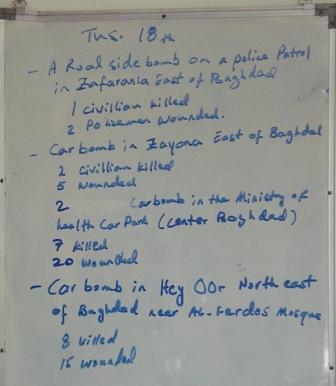 Tus. 18th
- A Road side bomb on a police Patrol
in Zafarania East of Baghdad
1 civillian killed
2 Policemen wounded.
- Car bomb in Zayona East of Baghdad
2 civillian killed
5 wounded
2 Carbomb in the Ministry of
health Car Park (center Baghdad)
7 killed
20 wounded
- Car bomb in Hey OOr North east
of Baghdad near AL-Ferdos Mosque
8 killed
15 wounded